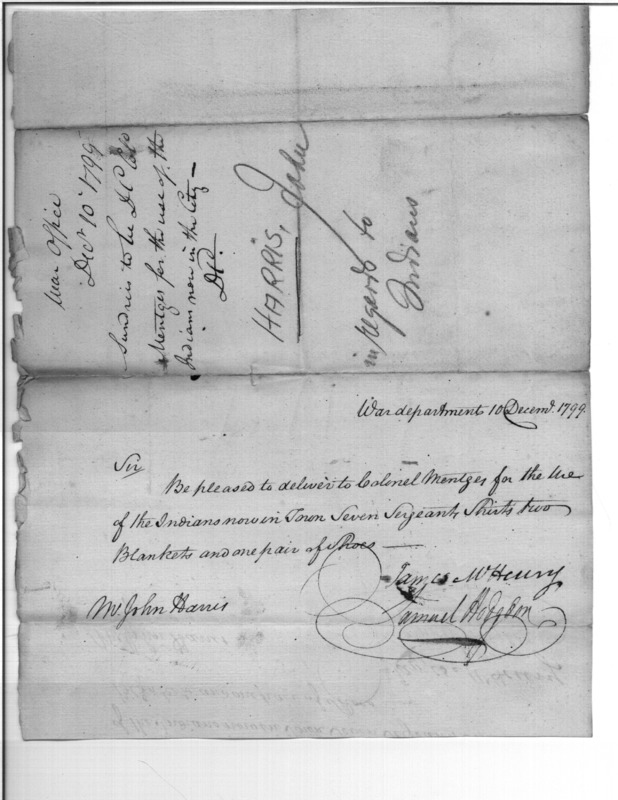 War Office
Decr 10th 1799
Sundries to be Dd Colo
Mentges for the use of the
Indians now in the City —
HARRIS, John
in regards to
Indians
War department 10 Decemr. 1799.
Sir
Be pleased to deliver to Colonel Mentges for the Use
of the Indians now in Town Seven Sergeants Shirts two
Blankets and one pair of Shoes —
James McHenry
Samuel Hodgdon
Mr John Harris